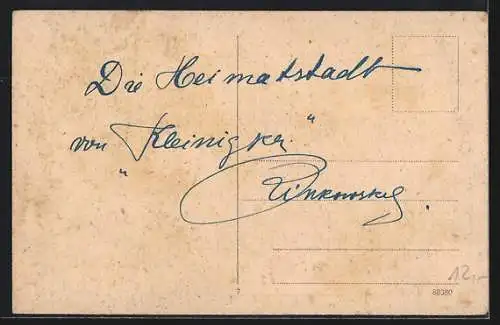 Die Heimatstadt
von „Kleinigker“
Pinkowsky.
12.-
7
88080